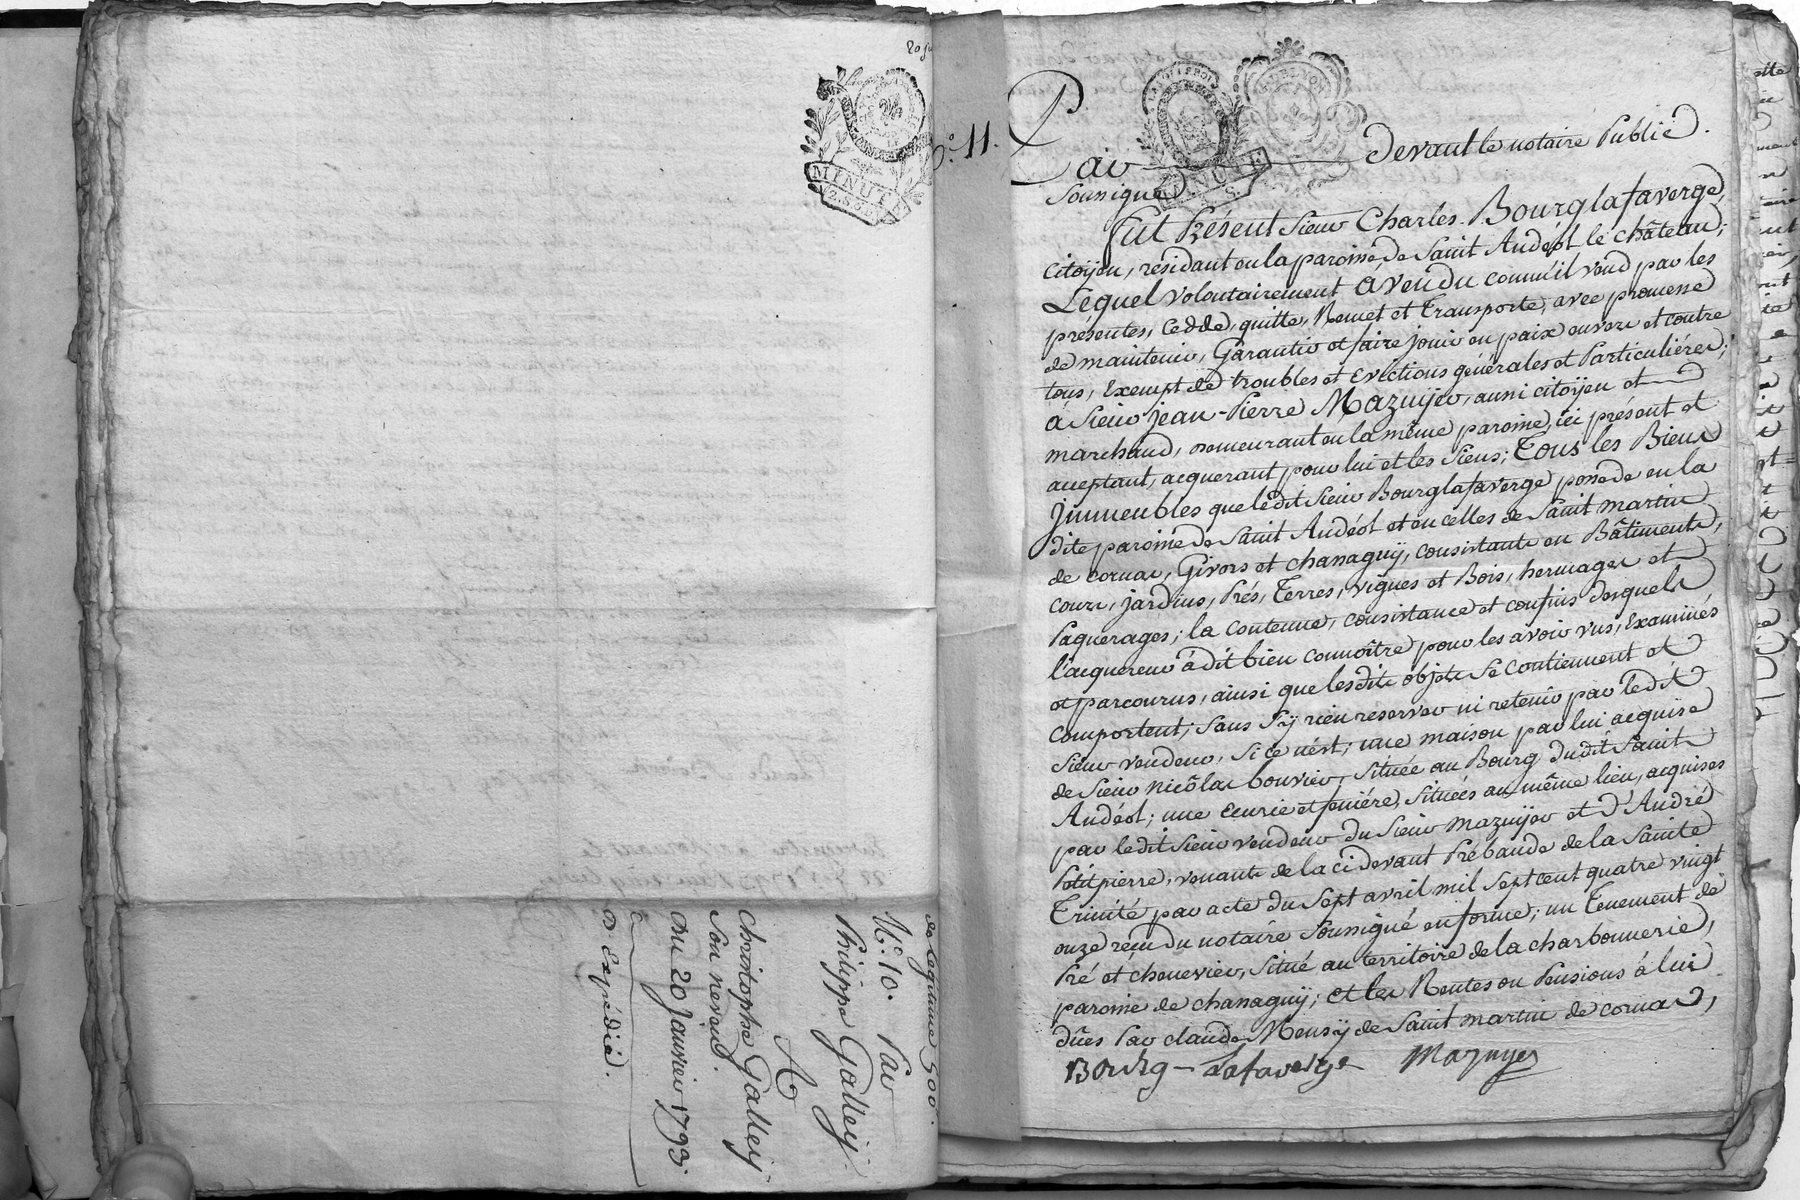 MINUTE
2. SOLS
de légitime 500.
N.º 10. Par
Philippe Galley
A
Christophe Galley
Son neveu.
Du 20 Janvier 1793.
Expédié.
N.º 11.
Par devant le notaire Public
Soussigné
Fut Présent Sieur Charles Bourglafaverge,
citoÿen, résidant en la paroisse de Saint Andéol le château;
Lequel volontairement à vendu comm'il vend par les
présentes, Cedde, quitte, Remet et Transporte, avec promesse
de maintenir, Garantir et faire jouir en paix envers et contre
tous, Exempt de troubles et Evictions générales et Particuliéres;
à Sieur Jean-Pierre Mazuÿer, aussi citoÿen et
marchand, demeurant en la même paroisse, ici présent et
acceptant, acquerant pour lui et les Siens; Tous les Biens
Immeubles que ledit Sieur Bourglafaverge possede en la
dite paroisse de Saint Andéol et en celles de Saint martin
de cornas, Givors et chanaguÿ, consistants en Bâtiments,
cours, jardins, Prés, Terres, vignes et Bois, hermages et
Paquerages; la contenue, consistance et confins desquels
l'acquereur à dit bien connoître pour les avoir vus, Examinés
et parcourus, ainsi que lesdits objets Se contiennent et
comportent; sans s'ÿ rien reserver ni retenir par ledit
Sieur vendeur, Si ce n'est; une maison par lui acquise
de Sieur nicôlas bouvier, Située au Bourg dudit Saint
Andéol; une écurie et feniére, Situées au même lieu, acquises
par ledit Sieur vendeur du Sieur Mazuÿer et d'André
Petitpierre, venants de la cidevant Prébande de la Sainte
Trinité par acte du Sept avril mil Sept cent quatre vingt
onze reçu du notaire Soussigné en forme; un Tenement de
Pré et chenevier, Situé au territoire de la charbonnerie,
paroisse de chanaguÿ; et les Rentes ou Pensions à lui
dûes Par claude Mensÿ de Saint martin de cornas,
Bourg-Lafaverge Mazuyer